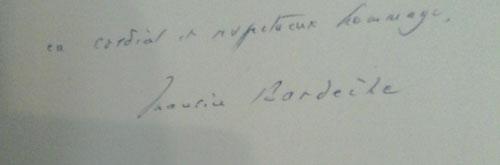 en cordial et respectueux hommage,
Maurice Bardèche